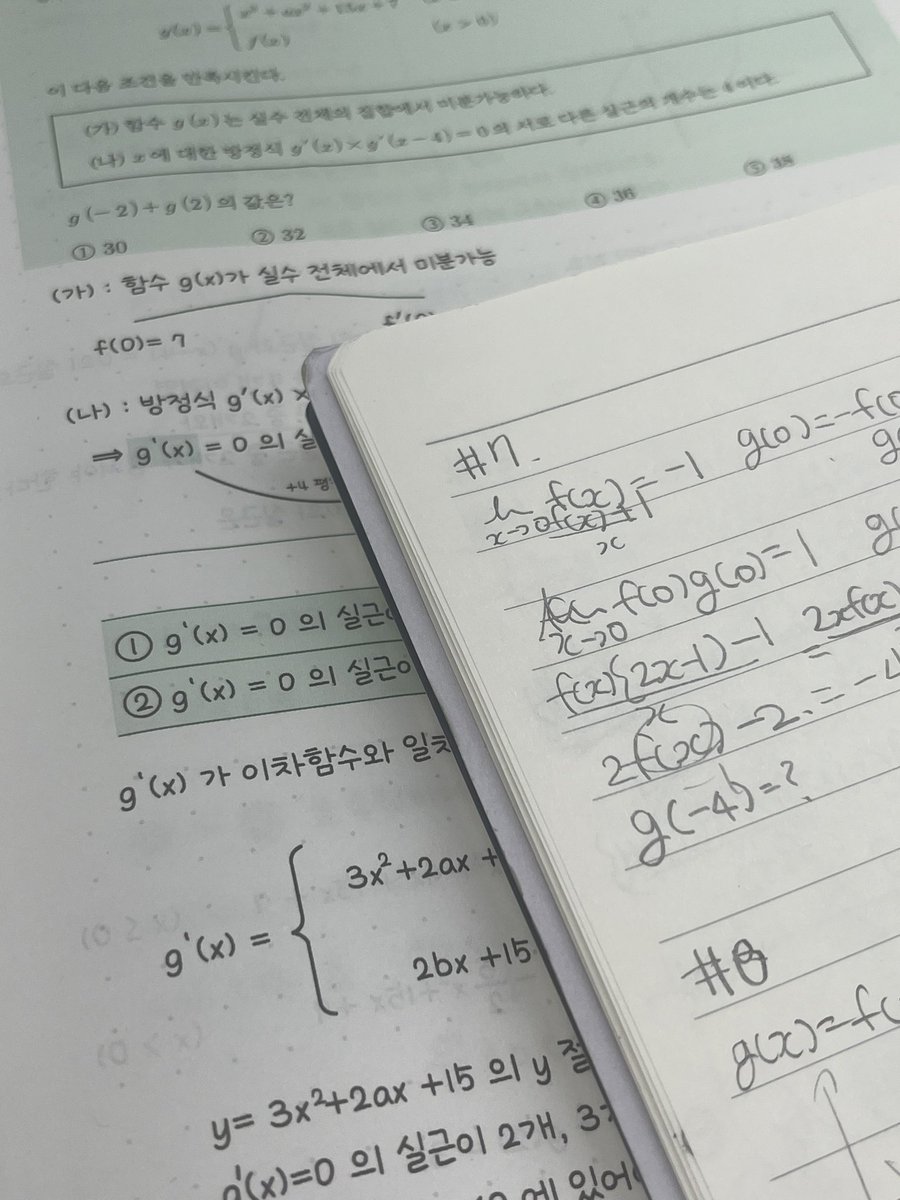 g(x) = { x³ + ax² + 15x + 7
f(x) (x > 0)
이 다음 조건을 만족시킨다.
(가) 함수 g(x)는 실수 전체의 집합에서 미분가능하다.
(나) x에 대한 방정식 g'(x) × g'(x-4) = 0의 서로 다른 실근의 개수는 4이다.
g(-2) + g(2)의 값은?
① 30 ② 32 ③ 34 ④ 36 ⑤ 38
(가) : 함수 g(x)가 실수 전체에서 미분가능
f(0) = 7
(나) : 방정식 g'(x) ×
⇒ g'(x) = 0 의 실
+4 평
① g'(x) = 0 의 실근
② g'(x) = 0 의 실근이
g'(x) 가 이차함수와 일차
g'(x) = { 3x²+2ax +
2bx +15
y= 3x²+2ax +15 의 y 절
g'(x)=0 의 실근이 2개, 3
에 있어
#7.
f(x)
= -1 g(0)=-f(0
x→0 f(x)+1
x
f(0)g(0)=1
x→0
f(x){2x-1}-1 2xf(x)
x
2f(x)-2 = -4
g(-4)=?
#8
g(x)=f(